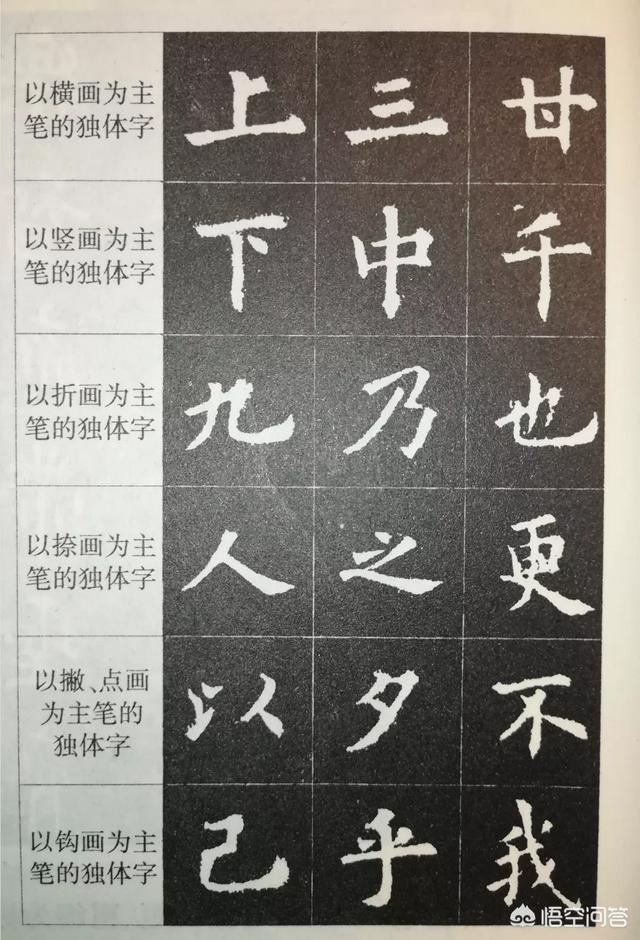 以横画为主
笔的独体字
上 三 甘
以竖画为主
笔的独体字
下 中 千
以折画为主
笔的独体字
九 乃 也
以捺画为主
笔的独体字
人 之 更
以撇、点画
为主笔的
独体字
以 夕 不
以钩画为主
笔的独体字
己 乎 我
悟空问答